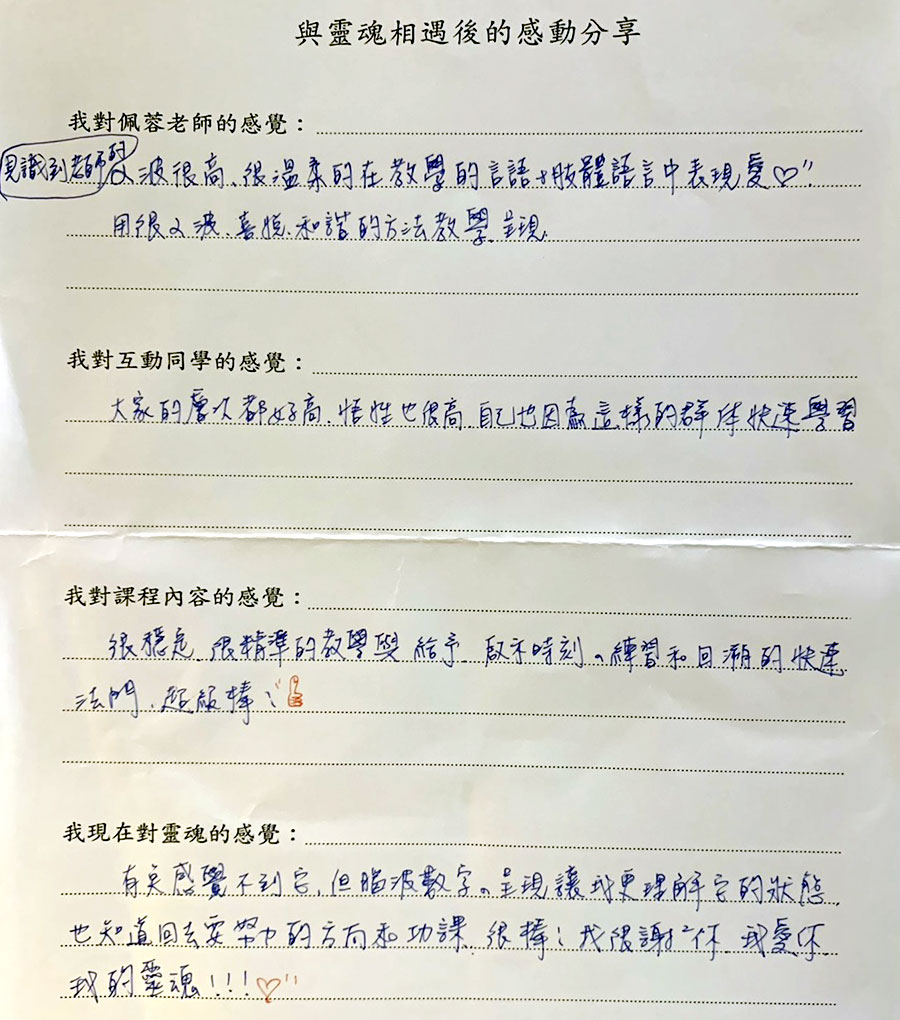 與靈魂相遇後的感動分享
我對佩蓉老師的感覺：
見識到老師的
α波很高、很溫柔的在教學的言語+肢體語言中表現愛♡"
用很α波、喜悅、和諧的方法教學呈現
我對互動同學的感覺：
大家的層次都好高、悟性也很高 自己也因為這樣的群体快速學習
我對課程內容的感覺：
很穩定 很精準的教學與給予 啟示時刻。練習和回溯的快速
法門、超級棒！
我現在對靈魂的感覺：
有點感覺不到它，但腦波數字。呈現讓我更理解它的狀態
也知道回去要努力的方向和功課 很棒！我很謝謝你 我愛你
我的靈魂！！！♡"